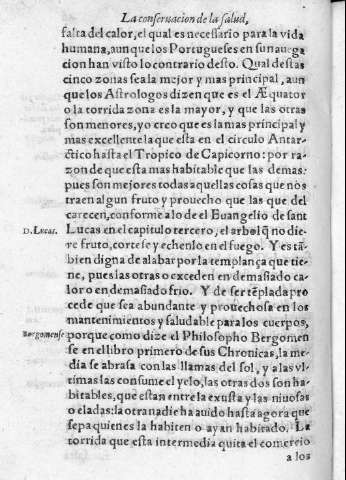 La conseruacion de la salud,
falta del calor, el qual es necessario para la vida
humana, aunque los Portugueses en su nauega
cion han visto lo contrario desto. Qual destas
cinco zonas sea la mejor y mas principal, aun
que los Astrologos dizen que es el Æquator
o la torrida zona es la mayor, y que las otras
son menores, yo creo que es la mas principal y
mas excellente la que esta en el circulo Antar-
ctico hasta el Tropico de Capicorno: por ra-
zon de que esta mas habitable que las demas:
pues son mejores todas aquellas cosas que nos
traen algun fruto y prouecho que las que del
carecen, conforme a lo de el Euangelio de sant
D. Lucas. Lucas en el capitulo tercero, el arbol q̃ no die
re fruto, cortese y echenlo en el fuego. Y es tã-
bien digna de alabar por la templança que tie
ne, pues las otras o exceden en demasiado ca-
lor o en demasiado frio. Y de ser tẽplada pro
cede que sea abundante y prouechosa en los
mantenimientos y saludable para los cuerpos,
Bergomense porque como dize el Philosopho Bergomen
se en el libro primero de sus Chronicas, la me
dia se abrasa con las llamas del sol, y a las vl-
timas las consume el yelo, las otras dos son ha-
bitables, que estan entre la exusta y las niuosas
o eladas: la otra nadie ha auido hasta agora que
sepa quienes la habiten o ayan habitado. La
torrida que esta intermedia quita el comercio
a los